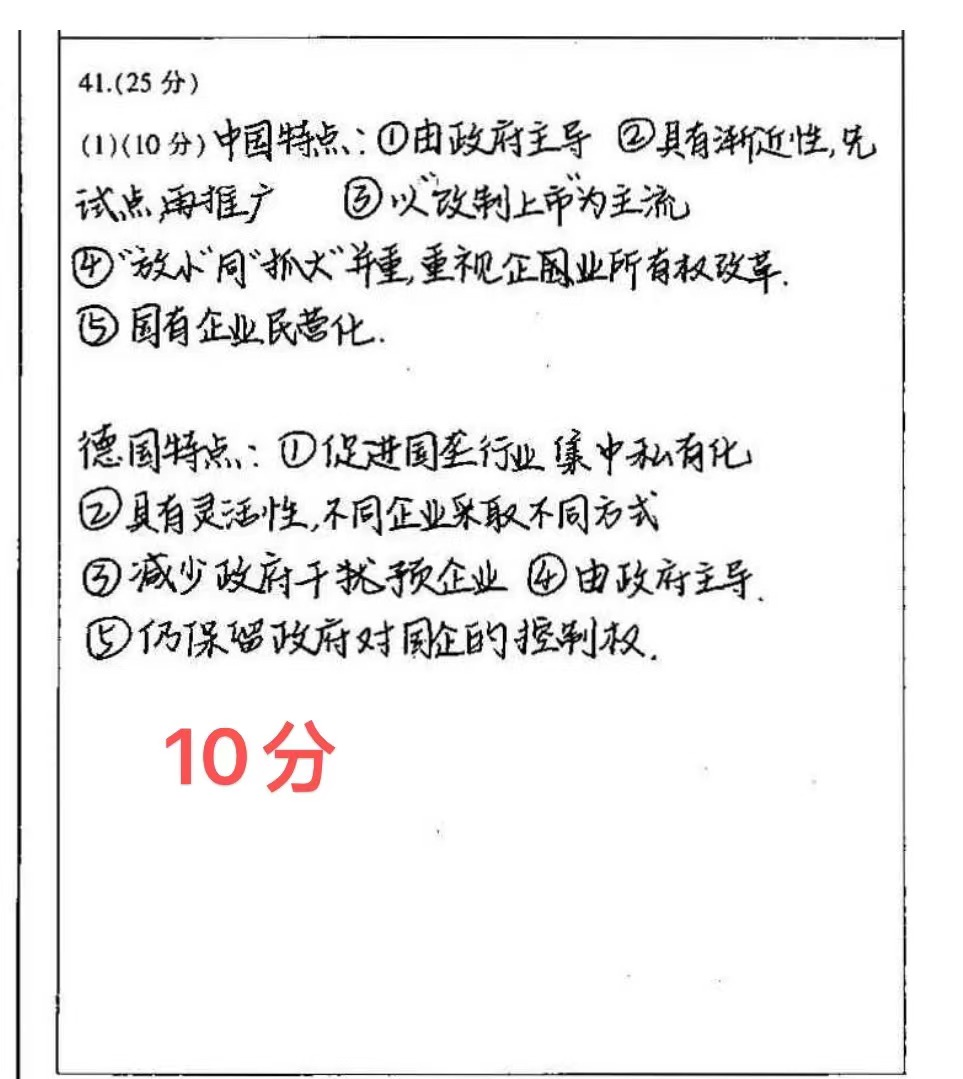 41.(25分)
(1)(10分)中国特点:①由政府主导 ②具有渐近性,先
试点,再推广 ③以“改制上市”为主流
④“放小”同“抓大”并重,重视企业所有权改革.
⑤国有企业民营化.
德国特点:①促进国垄行业集中私有化
②具有灵活性,不同企业采取不同方式
③减少政府干预企业 ④由政府主导.
⑤仍保留政府对国企的控制权.
10分